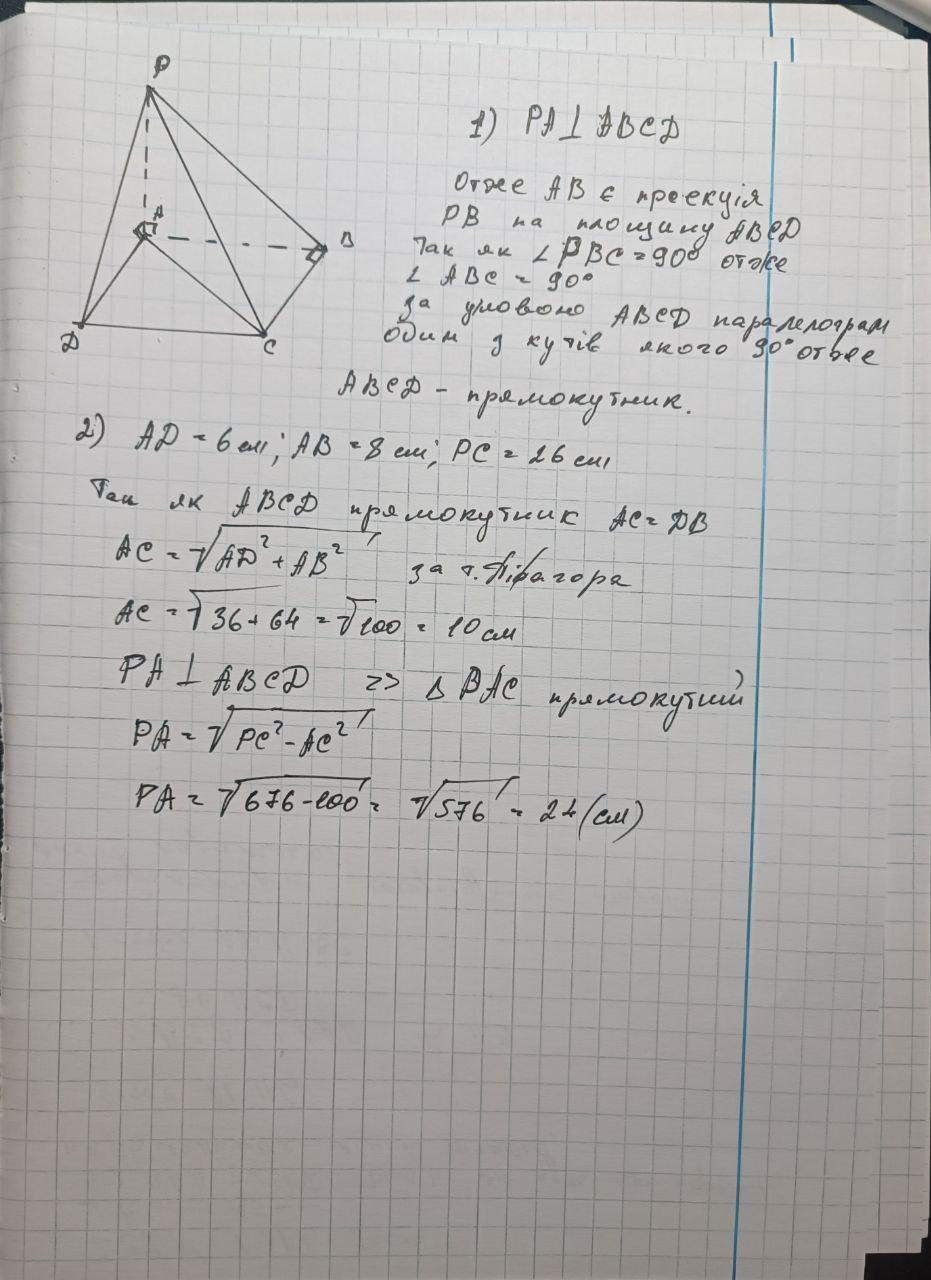 P
A
B
D
C
1) PA⊥ABCD
Отже AB є проекція
PB на площину ABCD
Так як ∠PBC = 90° отже
∠ABC = 90°
за умовою ABCD паралелограм
один з кутів якого 90° отже
ABCD - прямокутник.
2) AD = 6 см; AB = 8 см; PC = 26 см
Так як ABCD прямокутник AC = DB
AC = √AD² + AB² за т. Піфагора
AC = √36 + 64 = √100 = 10 см
PA ⊥ ABCD => Δ PAC прямокутний
PA = √PC² - AC²
PA = √676 - 100 = √576 = 24 (см)